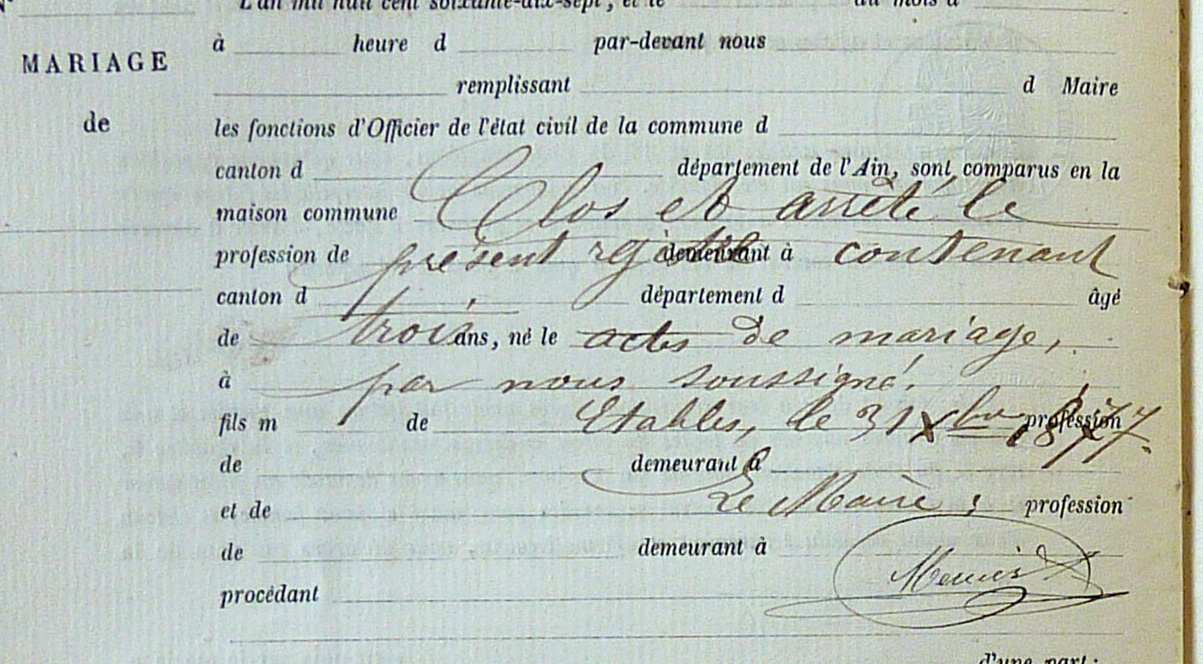 L'an mil huit cent soixante-dix-sept, et le du mois d
à heure d par-devant nous
MARIAGE
remplissant d Maire
de
les fonctions d'Officier de l'état civil de la commune d
canton d département de l'Ain, sont comparus en la
maison commune Clos et arrêté le
profession de présent registre demeurant à contenant
canton d département d âgé
de trois ans, né le actes de mariage,
à par nous soussigné.
fils m de Etables, le 31 Xbre profession 1877.
de demeurant à
et de Le Maire, profession
de demeurant à
procédant
d'une part;